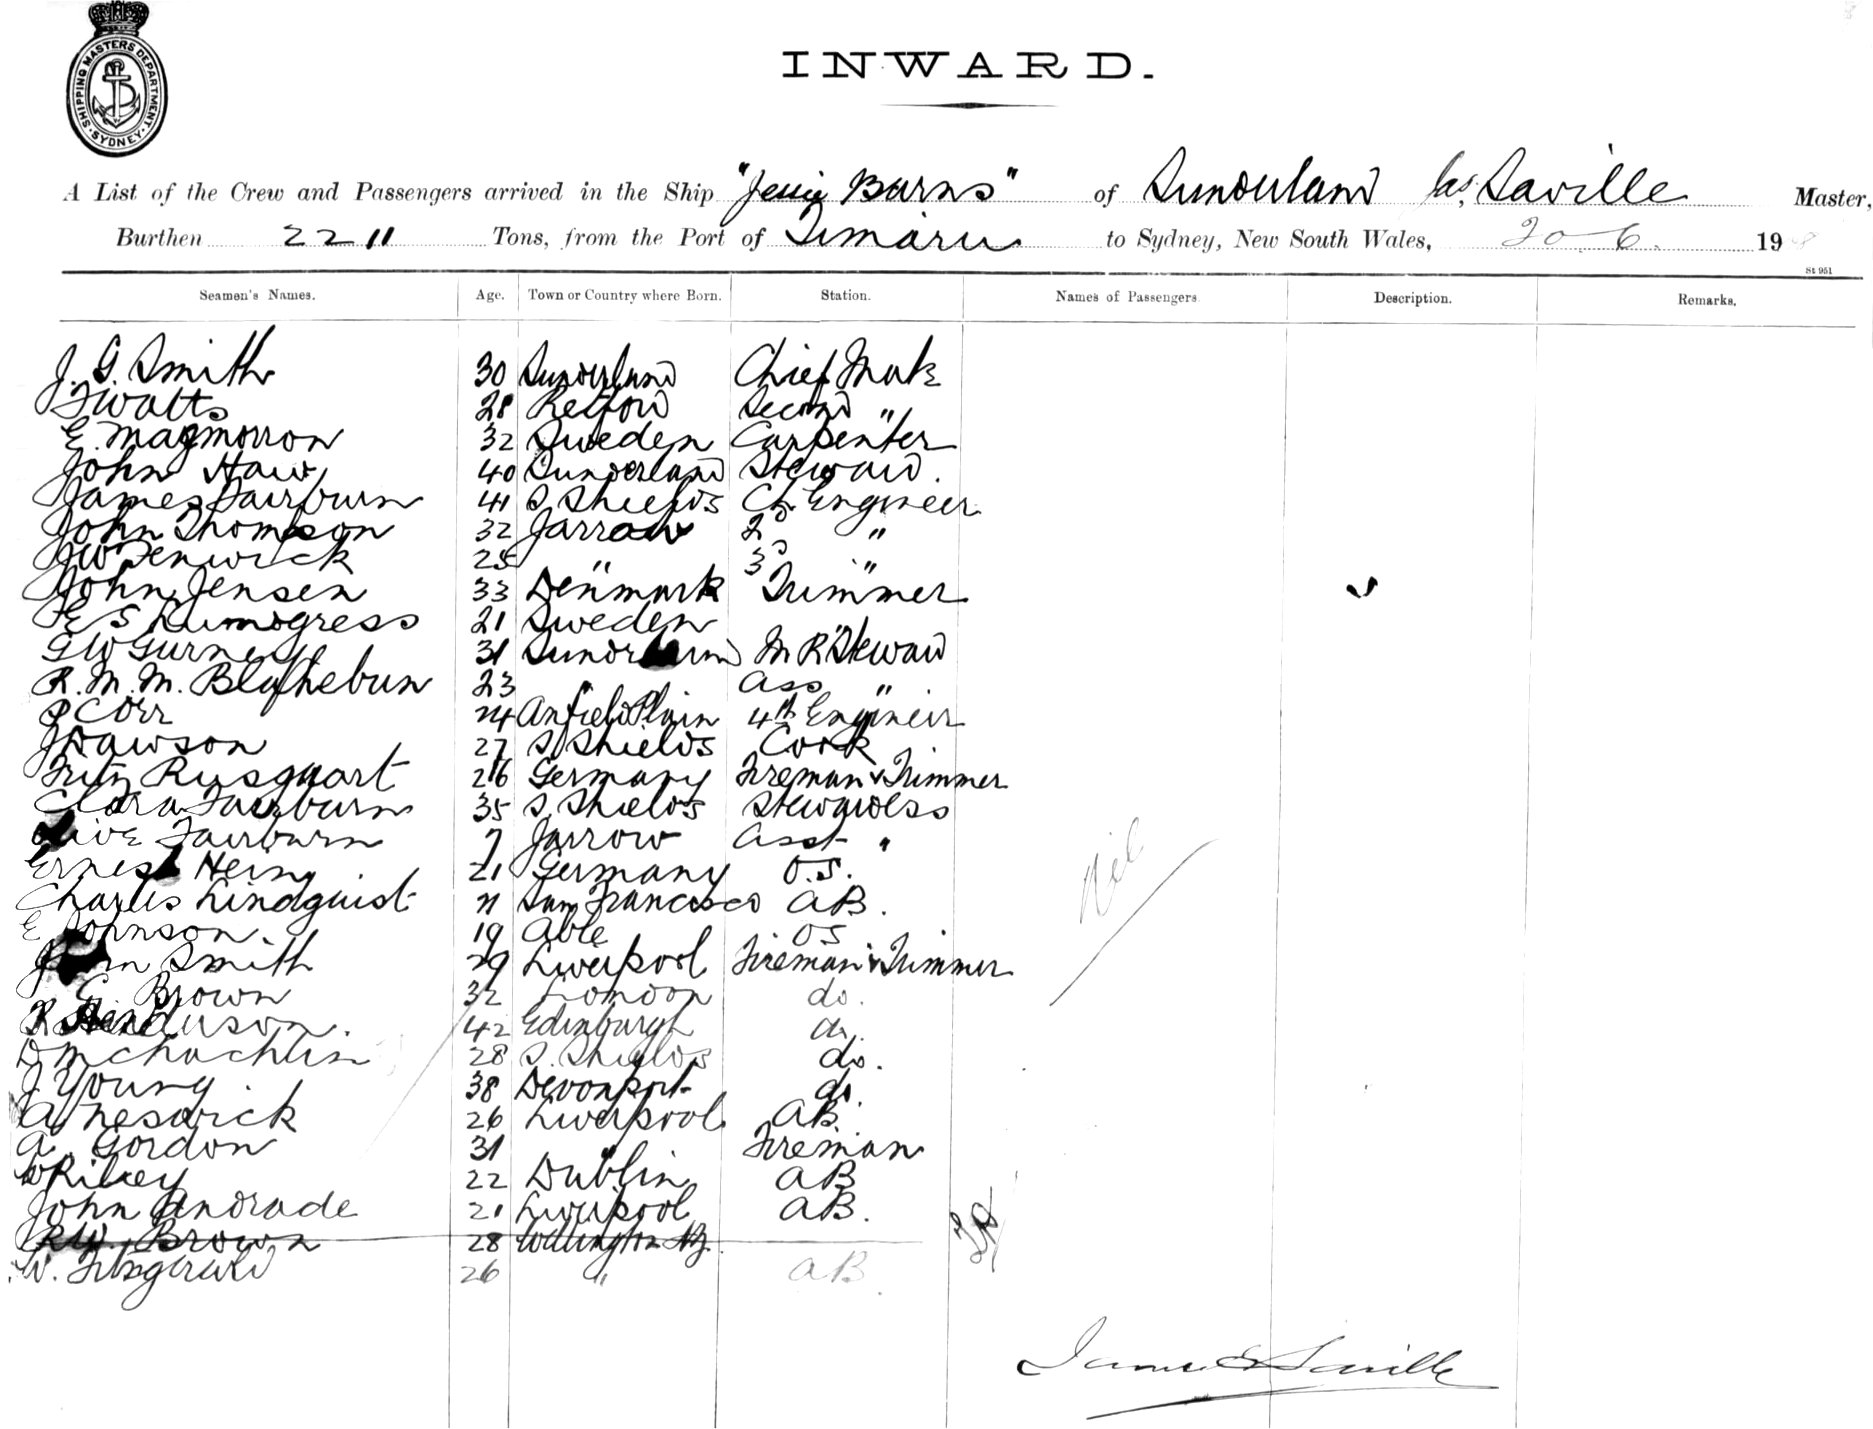 SHIPPING MASTERS DEPARTMENT · SYDNEY ·
INWARD.
A List of the Crew and Passengers arrived in the Ship "Jessie Burns" of Sunderland Jas. Saville Master,
Burthen 2211 Tons, from the Port of Timaru to Sydney, New South Wales, 20-6. 19
St 951
Seamen's Names. Age. Town or Country where Born. Station. Names of Passengers Description. Remarks.
J. G. Smith 30 Sunderland Chief Mate
Watts 28 Retford Second "
E. Magmorron 32 Sweden Carpenter
John Haw 40 Sunderland Steward.
James Fairburn 41 S. Shields Ch. Engineer
John Thompson 32 Jarrow 2d "
JW Fenwick 25 " 3d "
John Jensen 33 Denmark Trimmer
21 Sweden "
GW Gurney 31 Sunderland M R Steward
R. M. M. 23 " Ass "
Corr 24 Anfield Plain 4th Engineer
J Dawson 27 S. Shields Cook
Fritz 26 Germany Fireman & Trimmer
Clara Fairburn 35 S. Shields Stewardess
Olive Fairburn 7 Jarrow Asst "
Ernest Hein 21 Germany O.S.
Charles Lindquist 21 San Francisco AB.
E Johnson 19 Able OS
John Smith 29 Liverpool Fireman & Trimmer
E Brown 32 London do.
R Henderson. 42 Edinburgh do.
D McLachlin 28 S. Shields do.
J Young 38 Devonport do.
A Neswick 26 Liverpool AB.
A. Gordon 31 " Fireman
W Riley 22 Dublin AB
John Andrade 21 Liverpool AB.
RW. Brown 28 Wellington NZ.
W. Fitzgerald 26 " AB
Nil
James Saville